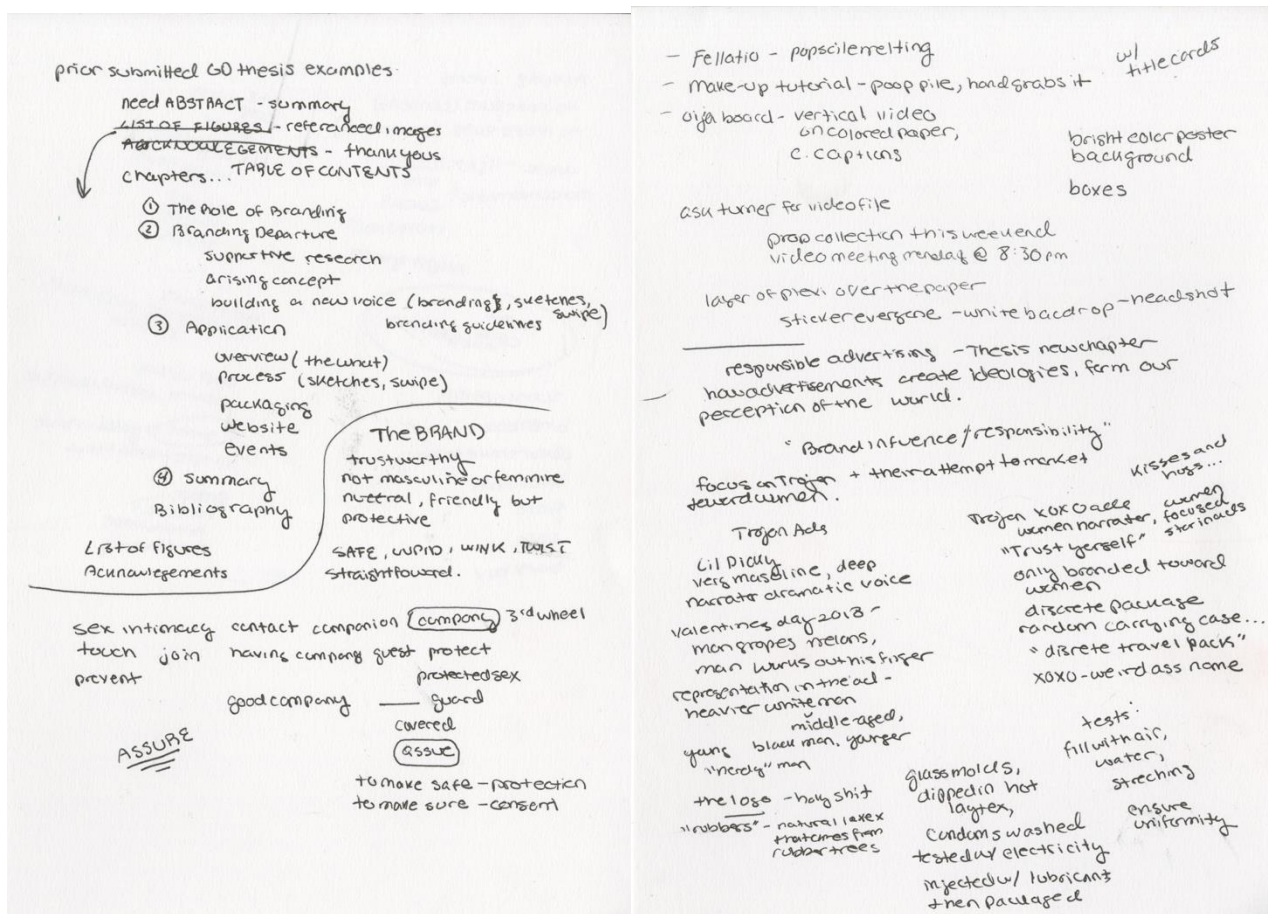 prior submitted GD thesis examples
need ABSTRACT - summary
LIST OF FIGURES - referenced images
ACKNOWLEGEMENTS - thank yous
chapters... TABLE OF CONTENTS
① The Role of Branding
② Branding Departure
supportive research
arising concept
building a new voice (branding), sketches, swipe)
branding guidelines
③ Application
overview (the what)
process (sketches, swipe)
packaging
website
events
④ Summary
Bibliography
List of figures
Acknowlegements
The BRAND
trustworthy
not masculine or feminine
nuetral, friendly but
protective
SAFE, CUPID, WINK, TWIST
straightfoward.
sex intimacy contact companion company 3rd wheel
touch join having company guest protect
prevent protected sex
good company guard
covered
ASSURE
to make safe - protection
to make sure - consent
- Fellatio - popscile melting
w/ title cards
- make-up tutorial - poop pile, hand grabs it
- oija board - vertical video
on colored paper,
c. captions
bright color poster
background
boxes
ask turner for video file
prop collection this weekend
video meeting monday @ 8:30 pm
layer of plexi over the paper
sticker everyone - white backdrop - headshot
responsible advertising - Thesis new chapter
how advertisements create ideologies, form our
perception of the world.
"Brand influence/responsibility"
focus on Trojan + their attempt to market
toward women.
Trojan Ads
Lil Dicky
very masculine, deep
narrator dramatic voice
valentines day 2013 -
man gropes melons,
man works out his finger
representation in the ad -
heavier white man
middle aged,
young black man, younger
"nerdy" man
the logo - holy shit
"rubbers" - natural latex
that comes from
rubber trees
kisses and
hugs...
Trojan XOXO
women narrator, women focused
"Trust yerself" star in ads
only branded toward
women
discrete package
random carrying case...
"discrete travel pack"
xoxo - weird ass name
glass molds,
dipped in hot
laytex,
condoms washed
tested w/ electricity
injected w/ lubricant
then packaged
tests:
fill with air,
water,
streching
ensure
uniformity